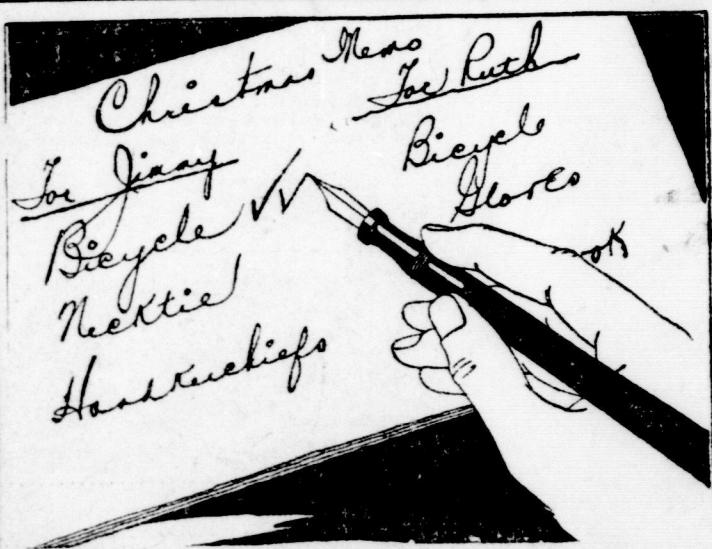 Christmas Memo
For Jimmy
Bicycle
Necktie
Handkerchiefs
For Ruth
Bicycle
Gloves